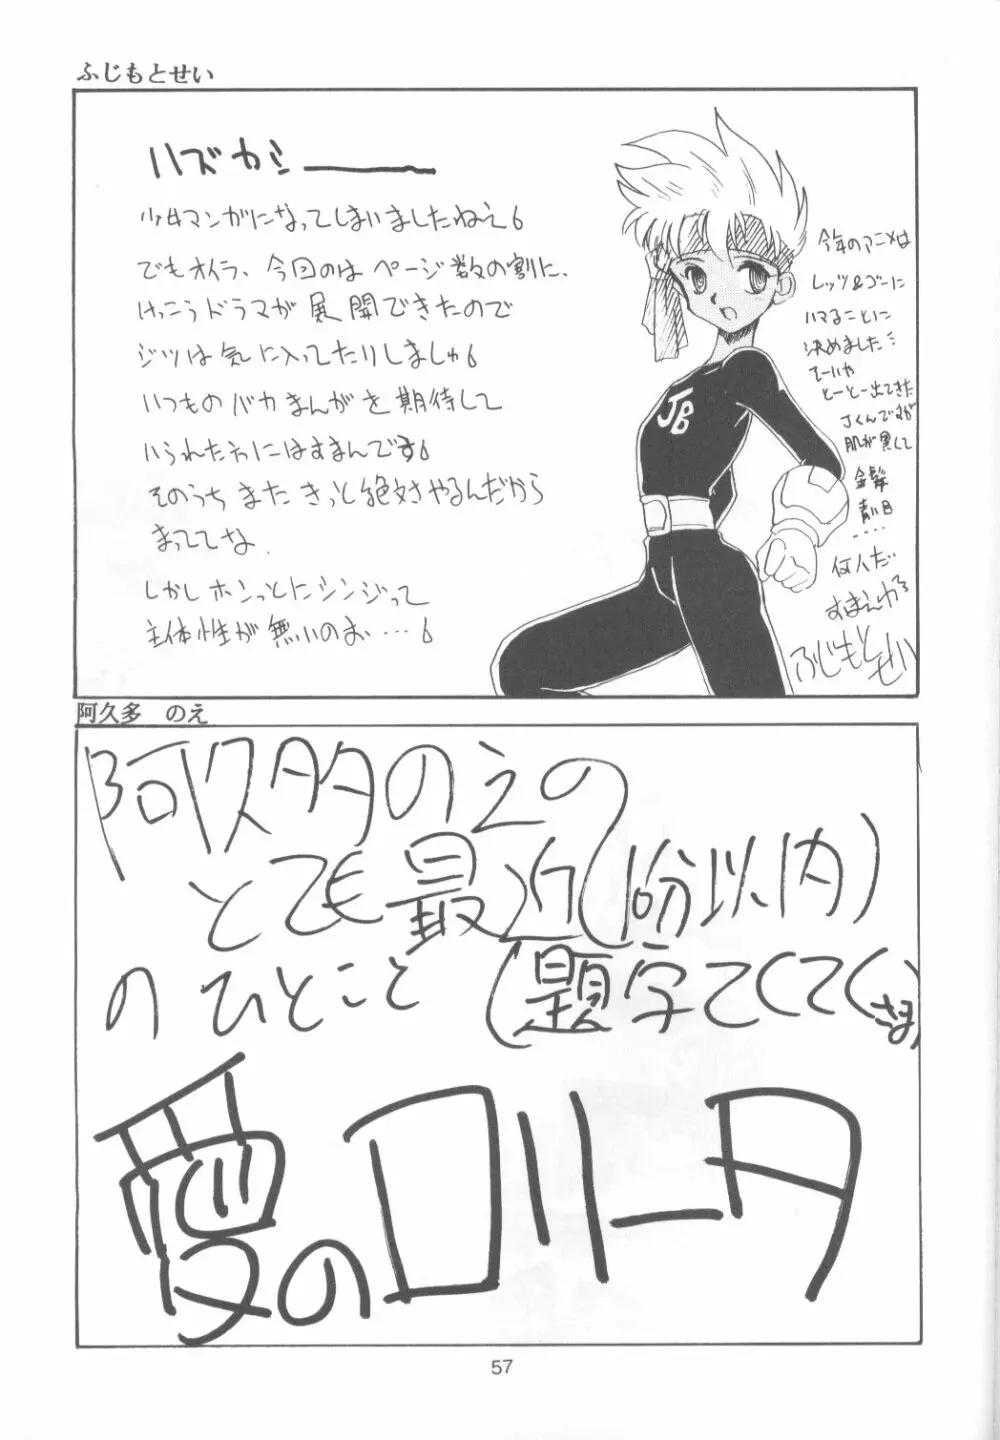 ふじもとせい
ハズカシ———
少女マンガになってしまいましたねえ。
でもオイラ、今回のは ページ数の割に、
けっこうドラマが 展開できたので
ジツは気に入ってたりしましゅ。
いつもの バカまんがを 期待して
いられた方にはすまんです。
そのうち また きっと 絶対 やるんだから
まっててな。
しかし ホンっとにシンジって
主体性が 無いのお…。
今年のアニメは
レッツ&ゴーに
ハマることに
決めました…
そーいや
とーとー出てきた
Jくんですが
肌が黒くて
金髪
青い目
....
何人だ
すまえわろ
ふじもとせい
JB
阿久多 のえ
阿久多のえの
とても最近(10分以内)
のひとこと (題字てくてくさま)
愛のロリータ
57